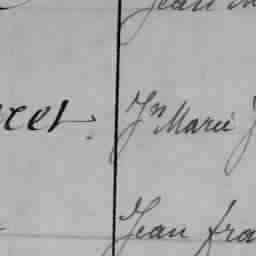 Jean M
cet. Jn Marie J
Jean fra